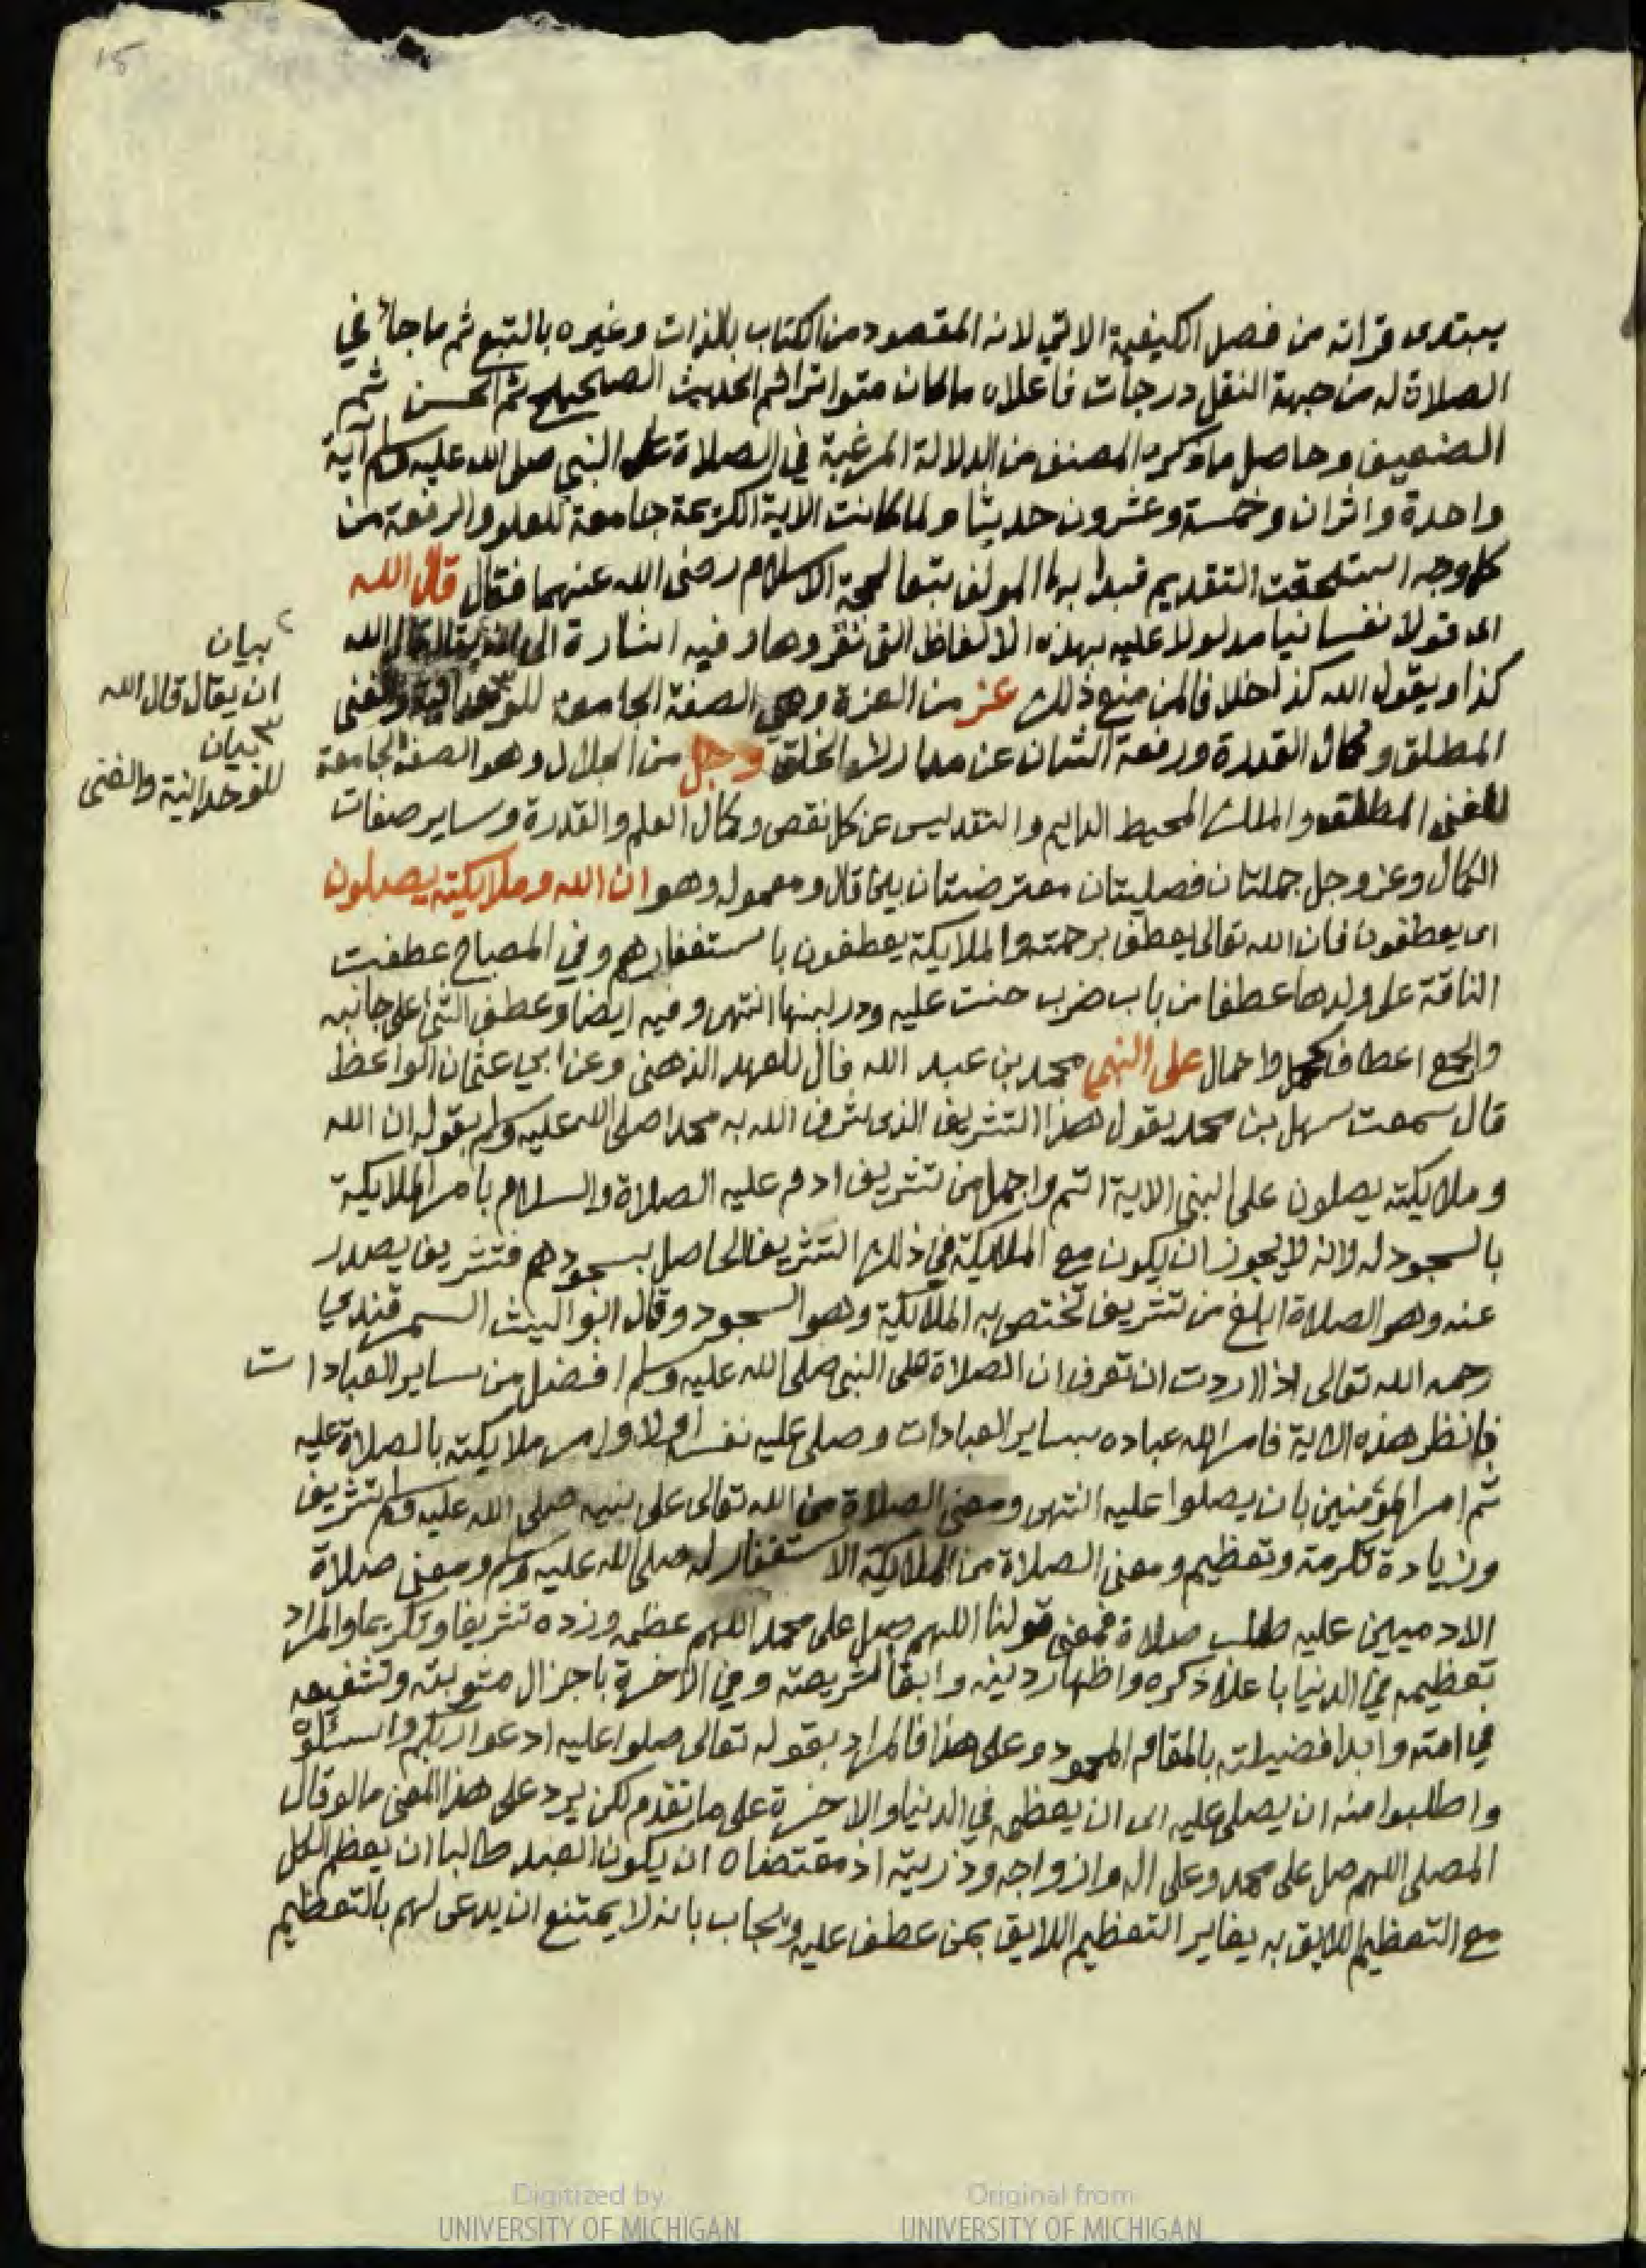 15
يبتدى قراته من فصل الكيفية الاتي لانه المقصود من الكتاب بالذات وغيره بالتبع ثم ما جاء في
الصلاة له من جهة النقل درجات فاعلاه ما كان متواترا ثم الحديث الصحيح ثم الحسن ثم
الضعيف وحاصل ما ذكره المصنف من الدلالة المرغبة في الصلاة على النبي صلى الله عليه وسلم آية
واحدة واثران وخمسة وعشرون حديثا ولما كانت الاية الكريمة جامعة للعلو والرفعة من
كل وجه استحقت التقديم فبدا بها المولف تبعا لحجة الاسلام رضى الله عنهما فقال قال الله
اى قولا نفسانيا مدلولا عليه بهذه الالفاظ التى نقروها وفيه اشارة الى انه يقال قال الله
كذا ويقول الله كذا خلافا لمن منع ذلك عز من العزة وهي الصفة الجامعة للوحدانية والغنى
المطلق وكمال القدرة ورفعة الشان عن مدارك الخلق وجل من الجلال وهو الصفة الجامعة
للغنى المطلق والملك المحيط الدايم والتقديس عن كل نقص وكمال العلم والقدرة وساير صفات
الكمال وعز وجل جملتان فصليتان معترضتان بين قال ومعموله وهو ان الله وملايكته يصلون
اى يعطفون فان الله تعالى يعطف برحمته والملايكة يعطفون باستغفارهم وفي المصباح عطفت
الناقة على ولدها عطفا من باب ضرب حنت عليه ودر لبنها انتهى وفيه ايضا وعطف الشئ على جانبه
والجمع اعطاف كحمل واحمال على النبي محمد بن عبد الله فال للعهد الذهنى وعن ابي عثمان الواعظ
قال سمعت سهل بن محمد يقول هذا التشريف الذى شرف الله به محمدا صلى الله عليه وسلم بقوله ان الله
وملايكته يصلون على النبى الاية اتم واجمل من تشريف ادم عليه الصلاة والسلام بامر الملايكة
بالسجود له لانه لا يجوز ان يكون مع الملايكة في ذلك التشريف الحاصل بسجودهم فتشريف يصدر
عنه وهو الصلاة ابلغ من تشريف تختص به الملايكة وهو السجود وقال ابو الليث السمرقندي
رحمه الله تعالى اذا اردت ان تعرف ان الصلاة على النبى صلى الله عليه وسلم افضل من ساير العبادات
فانظر هذه الاية فامر الله عباده بساير العبادات وصلى عليه نفسه اولا وامر ملايكته بالصلاة عليه
ثم امر المؤمنين بان يصلوا عليه انتهى ومعنى الصلاة من الله تعالى على نبيه صلى الله عليه وسلم تشريف
وزيادة تكرمة وتعظيم ومعنى الصلاة من الملايكة الاستغفار له صلى الله عليه وسلم ومعنى صلاة
الادميين عليه طلب صلاة فمعنى قولنا اللهم صل على محمد اللهم عظمه وزده تشريفا وتكريما والمراد
تعظيمه في الدنيا باعلاء ذكره واظهار دينه وابقا لشريعته وفي الاخرة باجزال مثوبته وتشفيعه
في امته وابدا فضيلته بالمقام المحمود وعلى هذا فالمراد بقوله تعالى صلوا عليه ادعوا ربكم واسئلوه
واطلبوا منه ان يصلى عليه اى ان يعظمه في الدنيا والاخرة على ما تقدم لكن يرد على هذا المعنى ما لو قال
المصلى اللهم صل على محمد وعلى اله وازواجه وذريته اذ مقتضاه ان يكون العبد طالبا ان يعظم الكل
مع التعظيم اللايق به يغاير التعظيم اللايق بمن عطف عليه ويجاب بانه لا يمتنع ان يدعى لهم بالتعظيم
٢ بيان
ان يقال قال الله
٣ بيان
للوحدانية والغنى
Digitized by
UNIVERSITY OF MICHIGAN
Original from
UNIVERSITY OF MICHIGAN